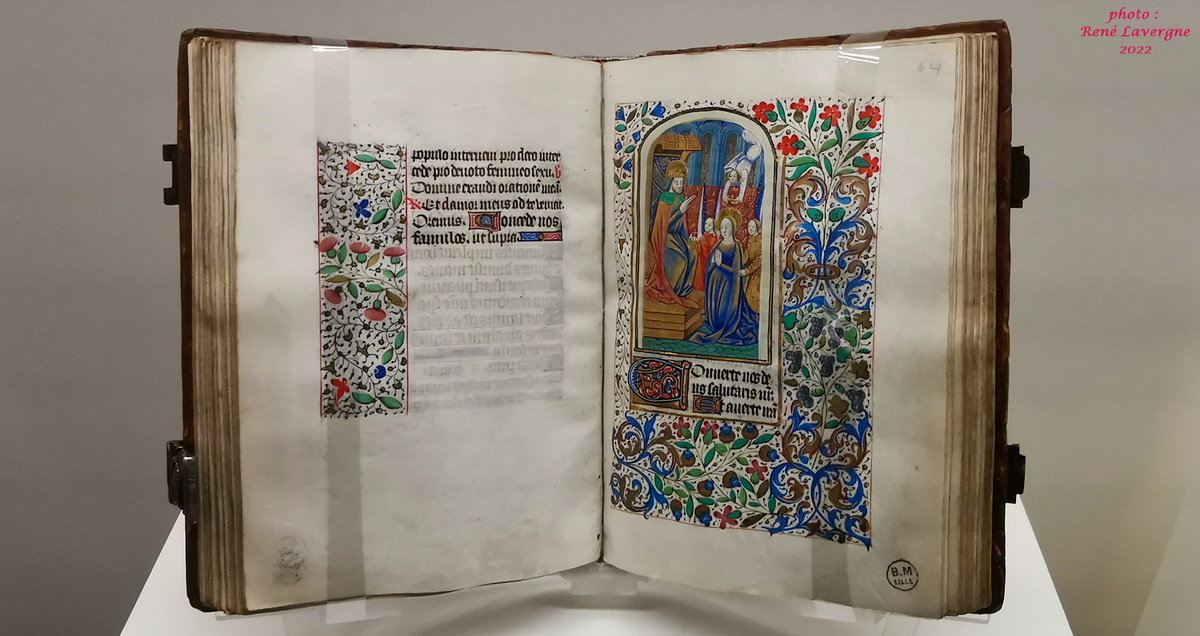 photo :
René Lavergne
2022
64
populo interueni pro clero inter
cede pro deuoto femineo sexu. V
Domine exaudi orationē meā.
R. Et clamor meus ad te veniat.
Oremus. Concede nos
famulos. ut supra
Onuerte nos de
us salutaris nr̄.
Et auerte irā
B.M
LILLE